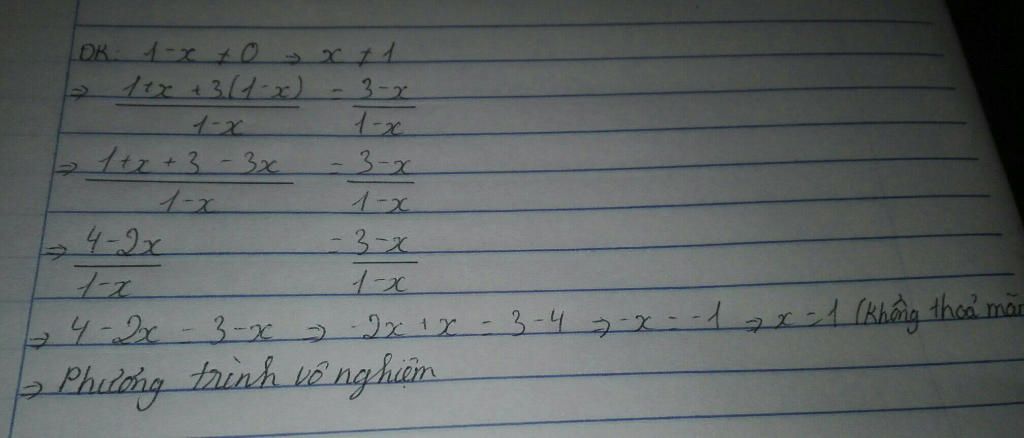 ĐK: 1-x ≠ 0 → x ≠ 1
⇒ (1+x + 3(1-x))/(1-x) = (3-x)/(1-x)
⇒ (1+x + 3 - 3x)/(1-x) = (3-x)/(1-x)
⇒ (4-2x)/(1-x) = (3-x)/(1-x)
⇒ 4-2x = 3-x ⇒ -2x+x = 3-4 ⇒ -x = -1 ⇒ x=1 (Không thoả mãn
⇒ Phương trình vô nghiệm